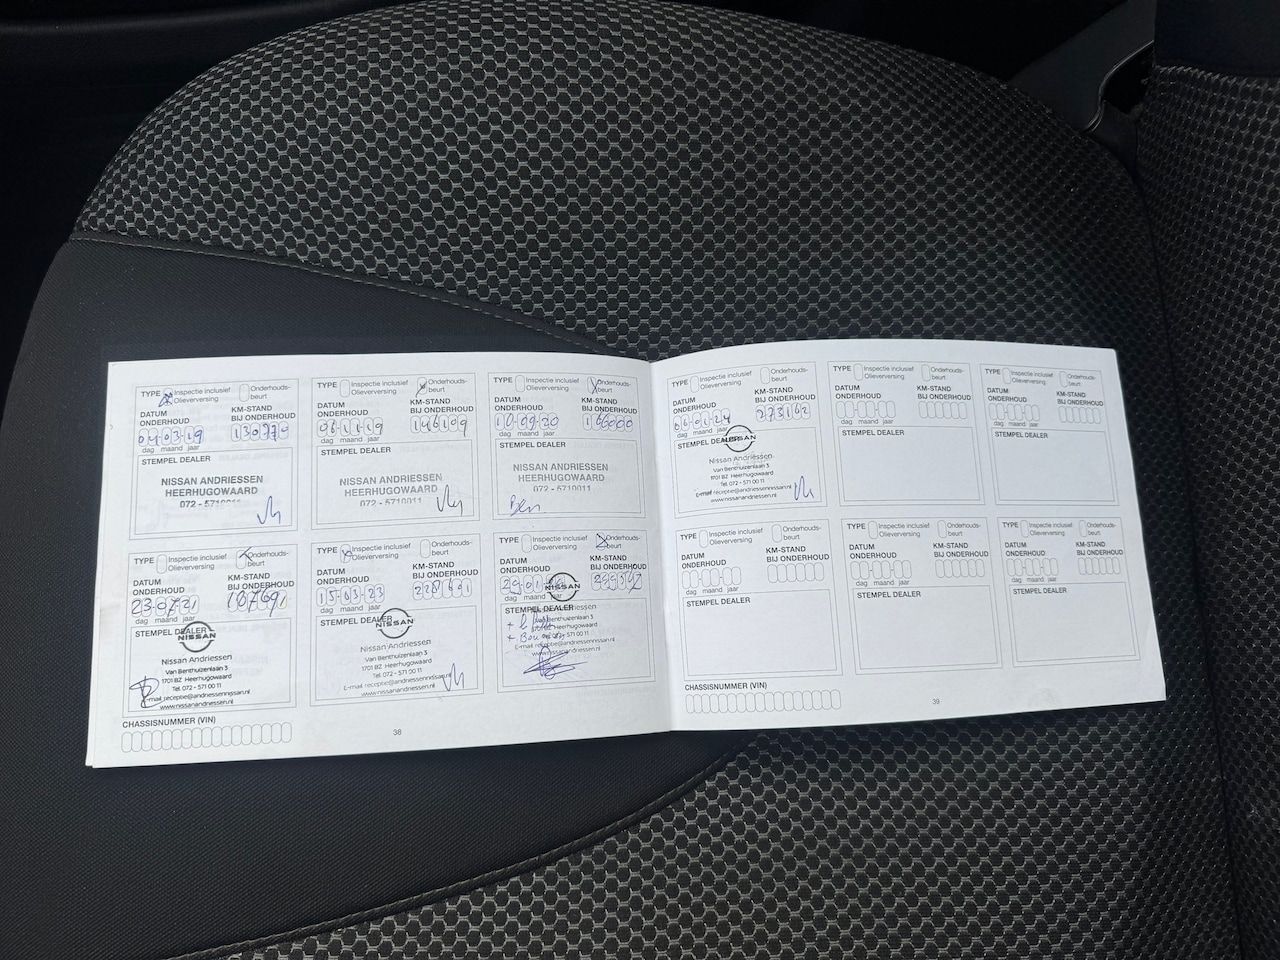 TYPE Inspectie inclusief Olieverversing Onderhouds-beurt
DATUM ONDERHOUD KM-STAND BIJ ONDERHOUD
04-03-19
dag maand jaar
STEMPEL DEALER
NISSAN ANDRIESSEN
HEERHUGOWAARD
072 - 5710011
TYPE Inspectie inclusief Olieverversing Onderhouds-beurt
DATUM ONDERHOUD KM-STAND BIJ ONDERHOUD
06-11-19 146109
dag maand jaar
STEMPEL DEALER
NISSAN ANDRIESSEN
HEERHUGOWAARD
072 - 5710011
TYPE Inspectie inclusief Olieverversing Onderhouds-beurt
DATUM ONDERHOUD KM-STAND BIJ ONDERHOUD
166000
dag maand jaar
STEMPEL DEALER
NISSAN ANDRIESSEN
HEERHUGOWAARD
072 - 5710011
Ben
TYPE Inspectie inclusief Olieverversing Onderhouds-beurt
DATUM ONDERHOUD KM-STAND BIJ ONDERHOUD
23-07-21 187691
dag maand jaar
STEMPEL DEALER
NISSAN
Nissan Andriessen
Van Benthuizenlaan 3
1701 BZ Heerhugowaard
Tel. 072 - 571 00 11
E-mail receptie@andriessennissan.nl
www.nissanandriessen.nl
TYPE Inspectie inclusief Olieverversing Onderhouds-beurt
DATUM ONDERHOUD KM-STAND BIJ ONDERHOUD
15-03-23 228601
dag maand jaar
STEMPEL DEALER
NISSAN
Nissan Andriessen
Van Benthuizenlaan 3
1701 BZ Heerhugowaard
Tel. 072 - 571 00 11
E-mail receptie@andriessennissan.nl
www.nissanandriessen.nl
TYPE Inspectie inclusief Olieverversing Onderhouds-beurt
DATUM ONDERHOUD KM-STAND BIJ ONDERHOUD
dag maand jaar
NISSAN
STEMPEL DEALER
Nissan Andriessen
Van Benthuizenlaan 3
1701 BZ Heerhugowaard
Tel. 072 - 571 00 11
E-mail receptie@andriessennissan.nl
www.nissanandriessen.nl
CHASSISNUMMER (VIN)
38
TYPE Inspectie inclusief Olieverversing Onderhouds-beurt
DATUM ONDERHOUD KM-STAND BIJ ONDERHOUD
06-01-24 273162
dag maand jaar
STEMPEL DEALER
NISSAN
Nissan Andriessen
Van Benthuizenlaan 3
1701 BZ Heerhugowaard
Tel. 072 - 571 00 11
E-mail receptie@andriessennissan.nl
www.nissanandriessen.nl
TYPE Inspectie inclusief Olieverversing Onderhouds-beurt
DATUM ONDERHOUD KM-STAND BIJ ONDERHOUD
dag maand jaar
STEMPEL DEALER
TYPE Inspectie inclusief Olieverversing Onderhouds-beurt
DATUM ONDERHOUD KM-STAND BIJ ONDERHOUD
dag maand jaar
STEMPEL DEALER
TYPE Inspectie inclusief Olieverversing Onderhouds-beurt
DATUM ONDERHOUD KM-STAND BIJ ONDERHOUD
dag maand jaar
STEMPEL DEALER
TYPE Inspectie inclusief Olieverversing Onderhouds-beurt
DATUM ONDERHOUD KM-STAND BIJ ONDERHOUD
dag maand jaar
STEMPEL DEALER
TYPE Inspectie inclusief Olieverversing Onderhouds-beurt
DATUM ONDERHOUD KM-STAND BIJ ONDERHOUD
dag maand jaar
STEMPEL DEALER
CHASSISNUMMER (VIN)
39